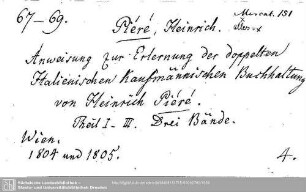 67-69. Piéré, Heinrich. Mercat. 151
x
alles x
Anweisung zur Erlernung der doppelten
Italienischen Kaufmännischen Buchhaltung
von Heinrich Piéré.
Theil I-III. Drei Bände.
Wien,
1804 und 1805. 4.
Sächsische Landesbibliothek -
Staats- und Universitätsbibliothek Dresden